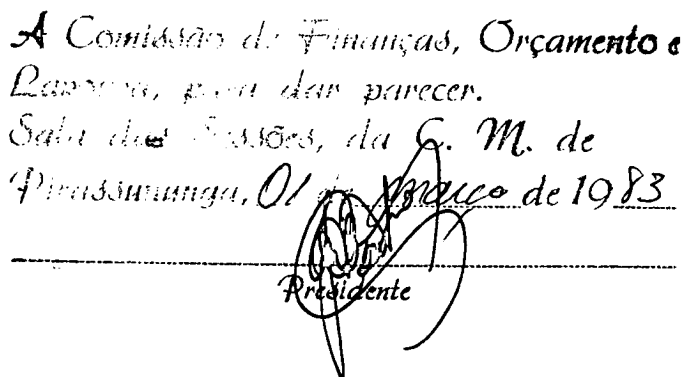 A Comissão de Finanças, Orçamento e
Lavoura, para dar parecer.
Sala das Sessões, da C. M. de
Pirassununga, 01 de março de 1983
Presidente